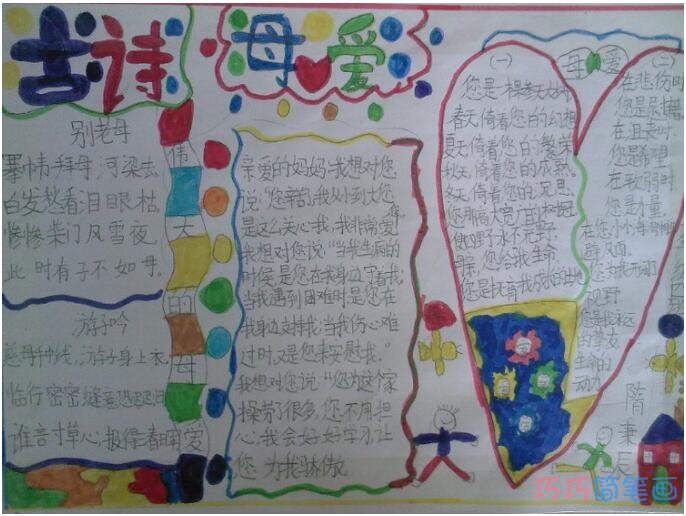 古诗
母爱
别老母
搴帏拜母河梁去
白发愁看泪眼枯
惨惨柴门风雪夜
此时有子不如母
游子吟
慈母手中线,游子身上衣
临行密密缝意恐迟迟归
谁言寸草心报得春晖
伟
大
的
母
爱
亲爱的妈妈:我想对您
说:"您辛苦,我从小到大您
是这么关心我,我非常爱您
我想对您说:"当我生病的
时候,是您在我身边守着我,
当我遇到困难时是您在
我身边支持我;当我伤心难
过时,又是您来安慰我。"
我想对您说:"您为这个家
操劳了很多,您不用担
心,我会好好学习,让
您为我骄傲
母爱
(一)
您是一棵参天大树
春天,倚着您的幻想
夏天,倚着您的繁荣
秋天,倚着您的成熟。
冬天,倚着您的沉思。
您那高大宽广的树冠
使四野永不荒野
您给我生命
(二)
在悲伤时
您是慰藉
在沮丧时
您是希望
在软弱时
您是力量
视野
您是我永远
的挚友
生命的
动力
隋
秉
辰
巧巧简笔画